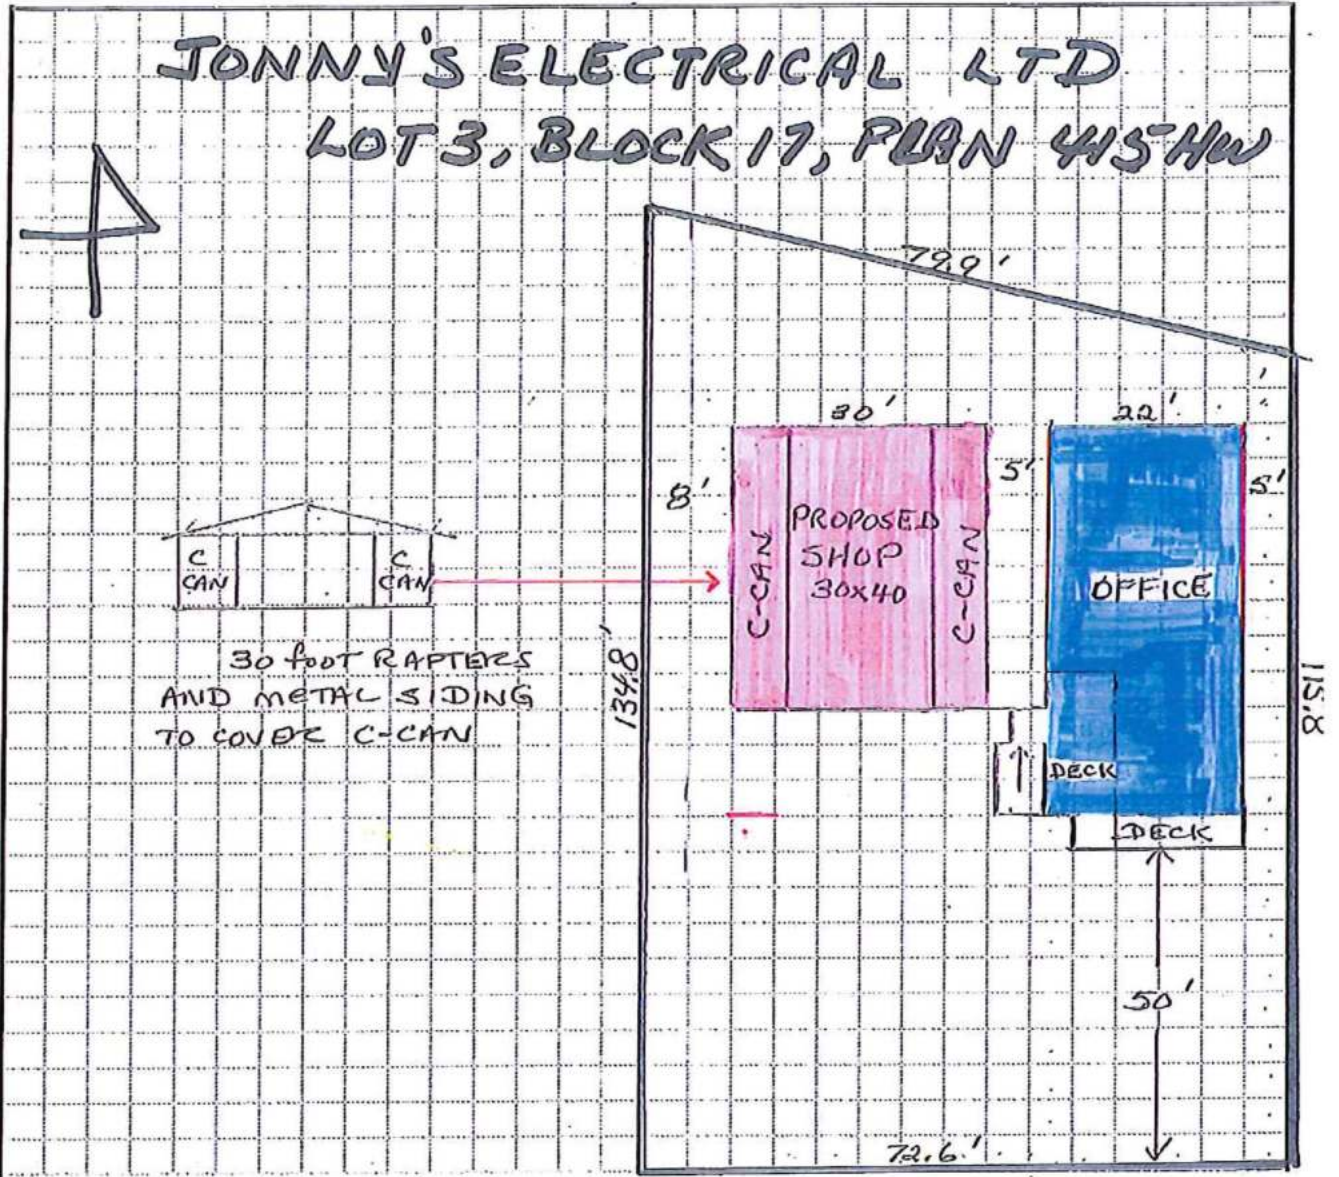 JONNY'S ELECTRICAL LTD
LOT 3, BLOCK 17, PLAN 4415HW
79.9'
30'
22'
8'
5'
5'
C-CAN
PROPOSED
SHOP
30x40
C-CAN
OFFICE
C
CAN
C
CAN
30 foot RAPTERS
AND METAL SIDING
TO COVER C-CAN
134.8'
115.8
DECK
DECK
50'
72.6'